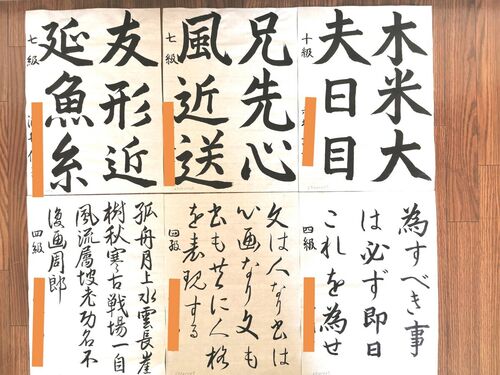 木米大
夫日目
十級
兄先心
風近送
七級
友形近
延魚糸
七級
為すべき事
は必ず即日
これを為せ
四級
文は人なり書は
心画なり文も
書も共に人格
を表現する
四級
孤舟月上水雲長崖
樹秋寒古戦場一自
風流属坡老功名不
復画周郎
四級